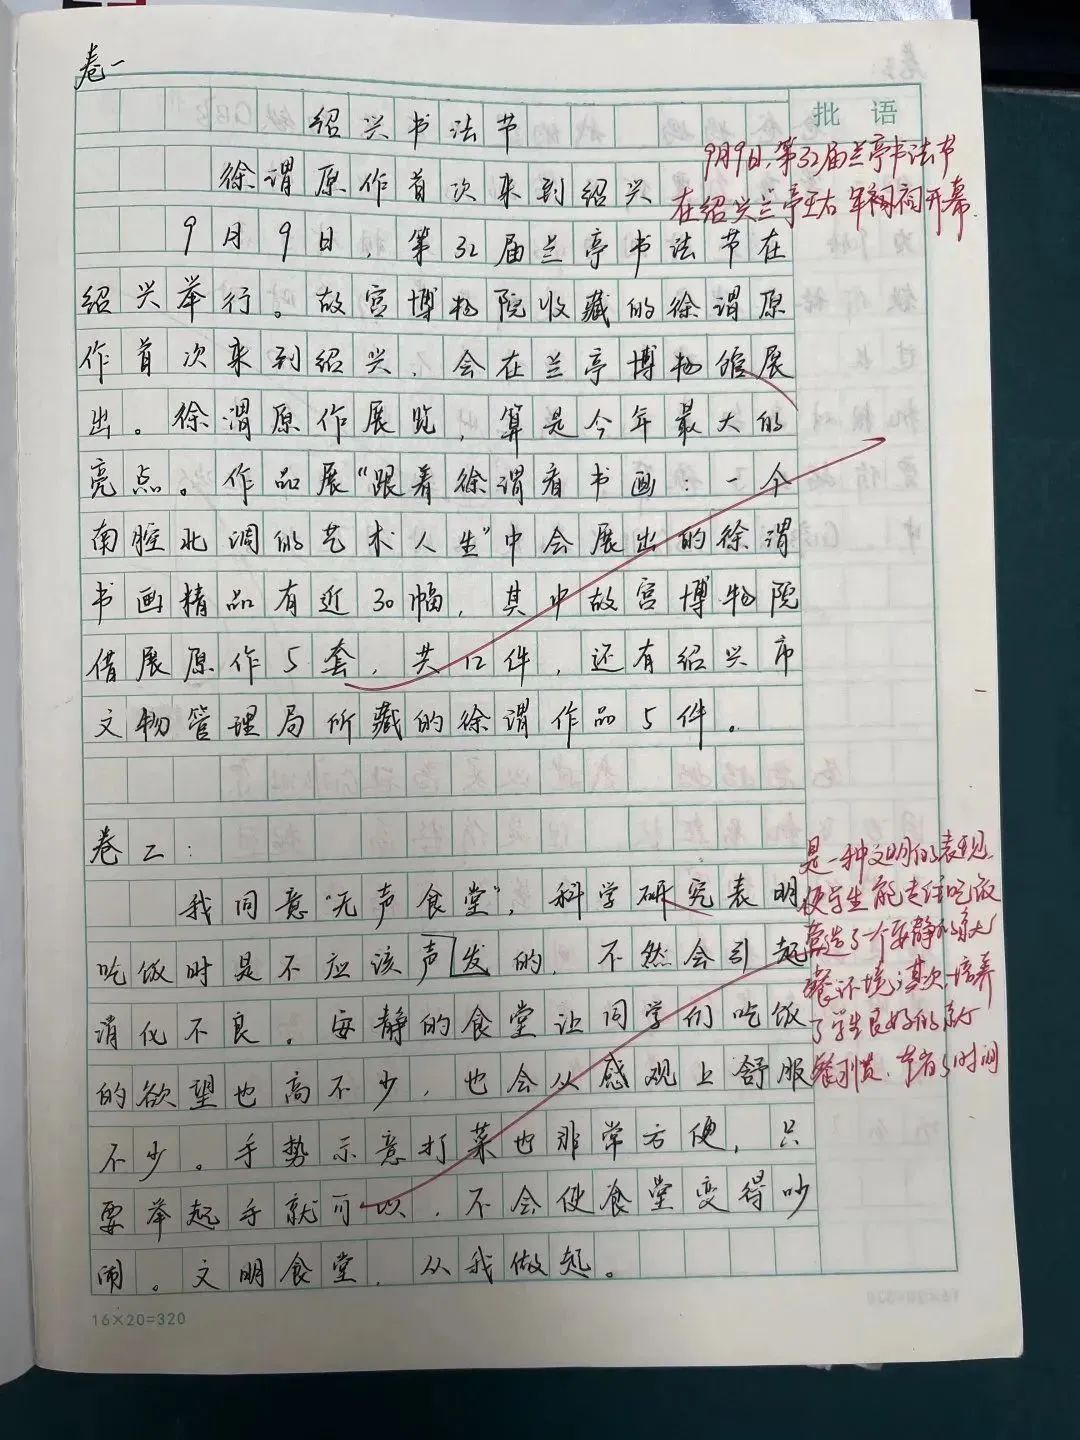 卷一
批 语
绍兴书法节
徐谓原作首次来到绍兴
9月9日,第32届兰亭书法节
在绍兴兰亭王右军祠开幕
9月9日,第32届兰亭书法节在
绍兴举行。故宫博物院收藏的徐谓原
作首次来到绍兴,会在兰亭博物馆展
出。徐渭原作展览,算是今年最大的
亮点。作品展“跟着徐谓看书画:一个
南腔北调的艺术人生”中会展出的徐谓
书画精品有近30幅,其中故宫博物院
借展原作5套,共12件,还有绍兴市
文物管理局所藏的徐谓作品5件。
卷二:
我同意“无声食堂”,科学研究表明
吃饭时是不应该声发的,不然会引起
消化不良。安静的食堂让同学们吃饭
的欲望也高不少,也会从感观上舒服
不少。手势示意打菜也非常方便,只
要举起手就可以,不会使食堂变得吵
闹。文明食堂,从我做起。
是一种文明的表现,
使学生能专任吃饭
营造了一个安静的
餐环境;其次,培养
了学生良好的就
餐习惯,节省了时间
16×20=320